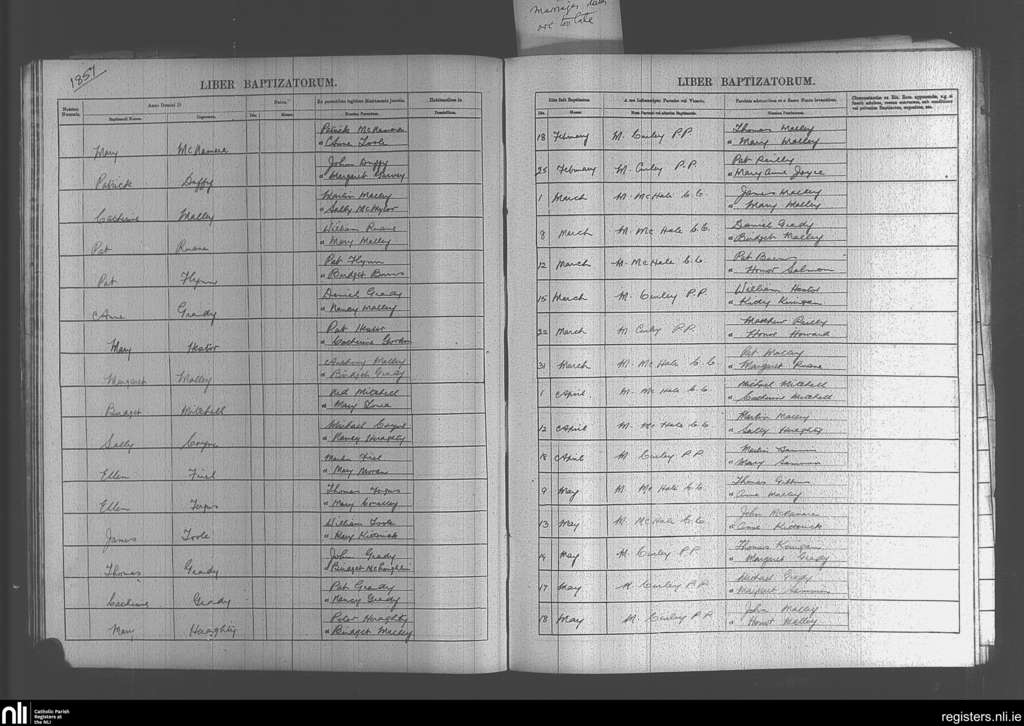 Marriages, dates
are too late
1857
LIBER BAPTIZATORUM.
Numerus
Anno Domini 18
Natus.
Ex parentibus legitimo Matrimonio junctis.
Habitantibus in
Baptizati Nomen.
Cognomen.
Die.
Mense.
Nomina Parentum.
Domicilium.
Mary McNamara Patrick McNamara
" Anne Toole
Patrick Duffy John Duffy
" Margaret
Catherine Malley Martin Malley
" Sally
Pat Ruane William Ruane
" Mary Malley
Pat Flynn Pat Flynn
" Bridget Burns
Anne Grady Daniel Grady
" Nancy Malley
Mary Hestor Pat Hestor
" Catherine Gordon
Margaret Malley Anthony Malley
" Bridget Grady
Bridget Mitchell Ned Mitchell
" Mary
Sally Coyne Michael Coyne
" Nancy Heraghty
Ellen Martin
" Mary Moran
Ellen Fergus Thomas Fergus
" Mary
James Toole William Toole
" Mary Kittrick
Thomas Grady John Grady
" Bridget
Catherine Grady Pat Grady
" Nancy Grady
Mary Heraghty Peter Heraghty
" Bridget Malley
LIBER BAPTIZATORUM.
Die fuit Baptizatus
A me Infrascripto Parocho vel Vicario.
Die.
Mense.
Nomen Parochi vel alterius Baptizantis.
Nomina Patrinorum.
18 February M. Curley P.P. Thomas Malley
" Mary Malley
25 February M. Curley P.P. Pat Reilly
" Mary Anne Joyce
1 March M. McHale C.C. James Malley
" Mary Malley
8 March M. McHale C.C. Daniel Grady
" Bridget Malley
12 March M. McHale C.C. Pat Burns
" Honor Salmon
15 March M. Curley P.P. William Hestor
" Kerrigan
22 March M Curley P.P. Matthew Reilly
" Honor Howard
31 March M. McHale C.C. Pat Malley
" Margaret Ruane
1 April. M. McHale C.C. Michael Mitchell
" Catherine Mitchell
12 April M. McHale C.C. Martin Malley
" Sally Heraghty
18 April M. Curley P.P. Martin
" Mary
9 May M. McHale C.C. Thomas
" Anne Malley
13 May M. McHale C.C. John McNamara
" Anne Kittrick
14 May M. Curley P.P. Thomas Kerrigan
" Margaret Grady
17 May M. Curley P.P. Michael Grady
" Margaret
18 May M. Curley P.P. John Malley
" Honor Malley
nli
Catholic Parish
Registers at
the NLI
registers.nli.ie